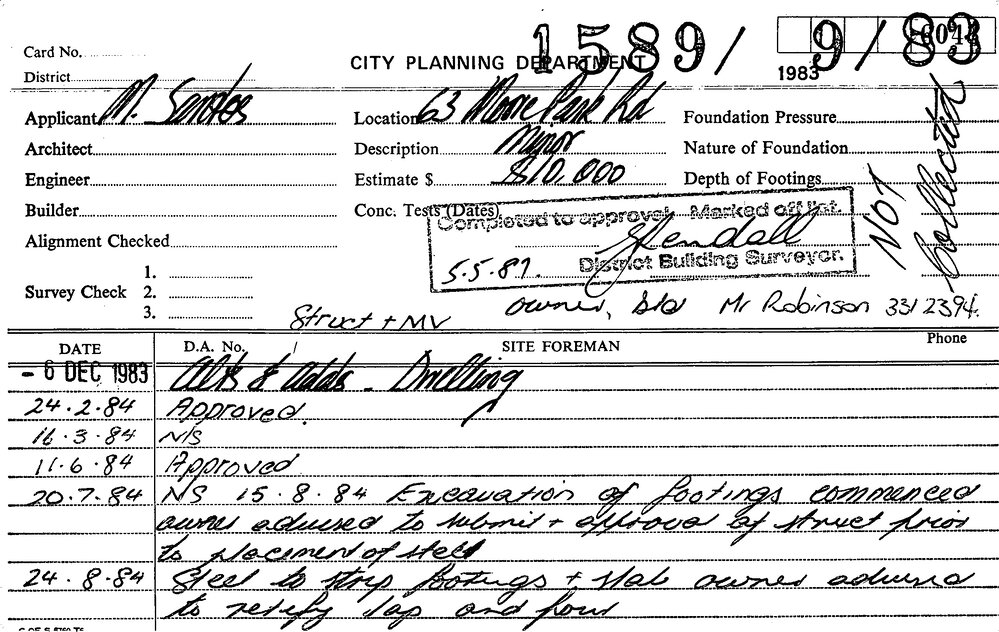 1589/ 9/83
Card No.
CITY PLANNING DEPARTMENT
1983
District
Applicant M. Santos
Location 63 Moore Park Rd
Foundation Pressure
Architect
Description Minor
Nature of Foundation
Engineer
Estimate $ $10,000
Depth of Footings
NOT Collected
Builder
Conc. Tests (Dates)
Completed to approval. Marked off list.
Alignment Checked
Kendall
5.5.87. District Building Surveyor.
Survey Check
1.
2.
3.
owner, Mr Robinson 331 2394.
Struct + MV
Phone
DATE D.A. No. / SITE FOREMAN
- 6 DEC 1983 Alts & adds - Dwelling
24.2.84 Approved.
16.3.84 N/S
11.6.84 Approved
20.7.84 NS 15.8.84 Excavation of footings commenced
owner advised to submit + approval of struct prior
to placement of steel
24.8.84 Steel to strip footings + slab owner advised
to rectify lap and pour